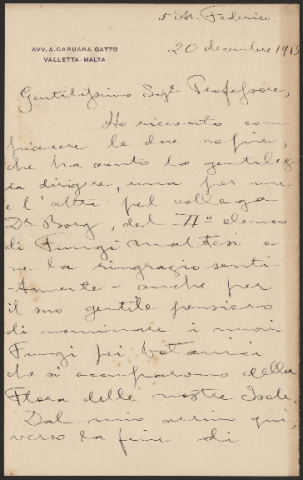 5 Str. Federico.
20 decembre 1913
AVV. A. CARUANA GATTO
VALLETTA-MALTA
Gentilissimo Sigr Professore,
Ho ricevuto con
piacere le due copie,
che ha avuto la gentilez
za dirigere, una per me
e l'altra pel collega
Dr Borg, del IIo elenco
di Funghi maltesi e
ne la ringrazio senti-
tamente - anche per
il suo gentile pensiero
di nominare i nuovi
Funghi pei botanici
che si occuparono della
Flora delle nostre Isole.
Dal mio arrivo qui,
verso la fine di